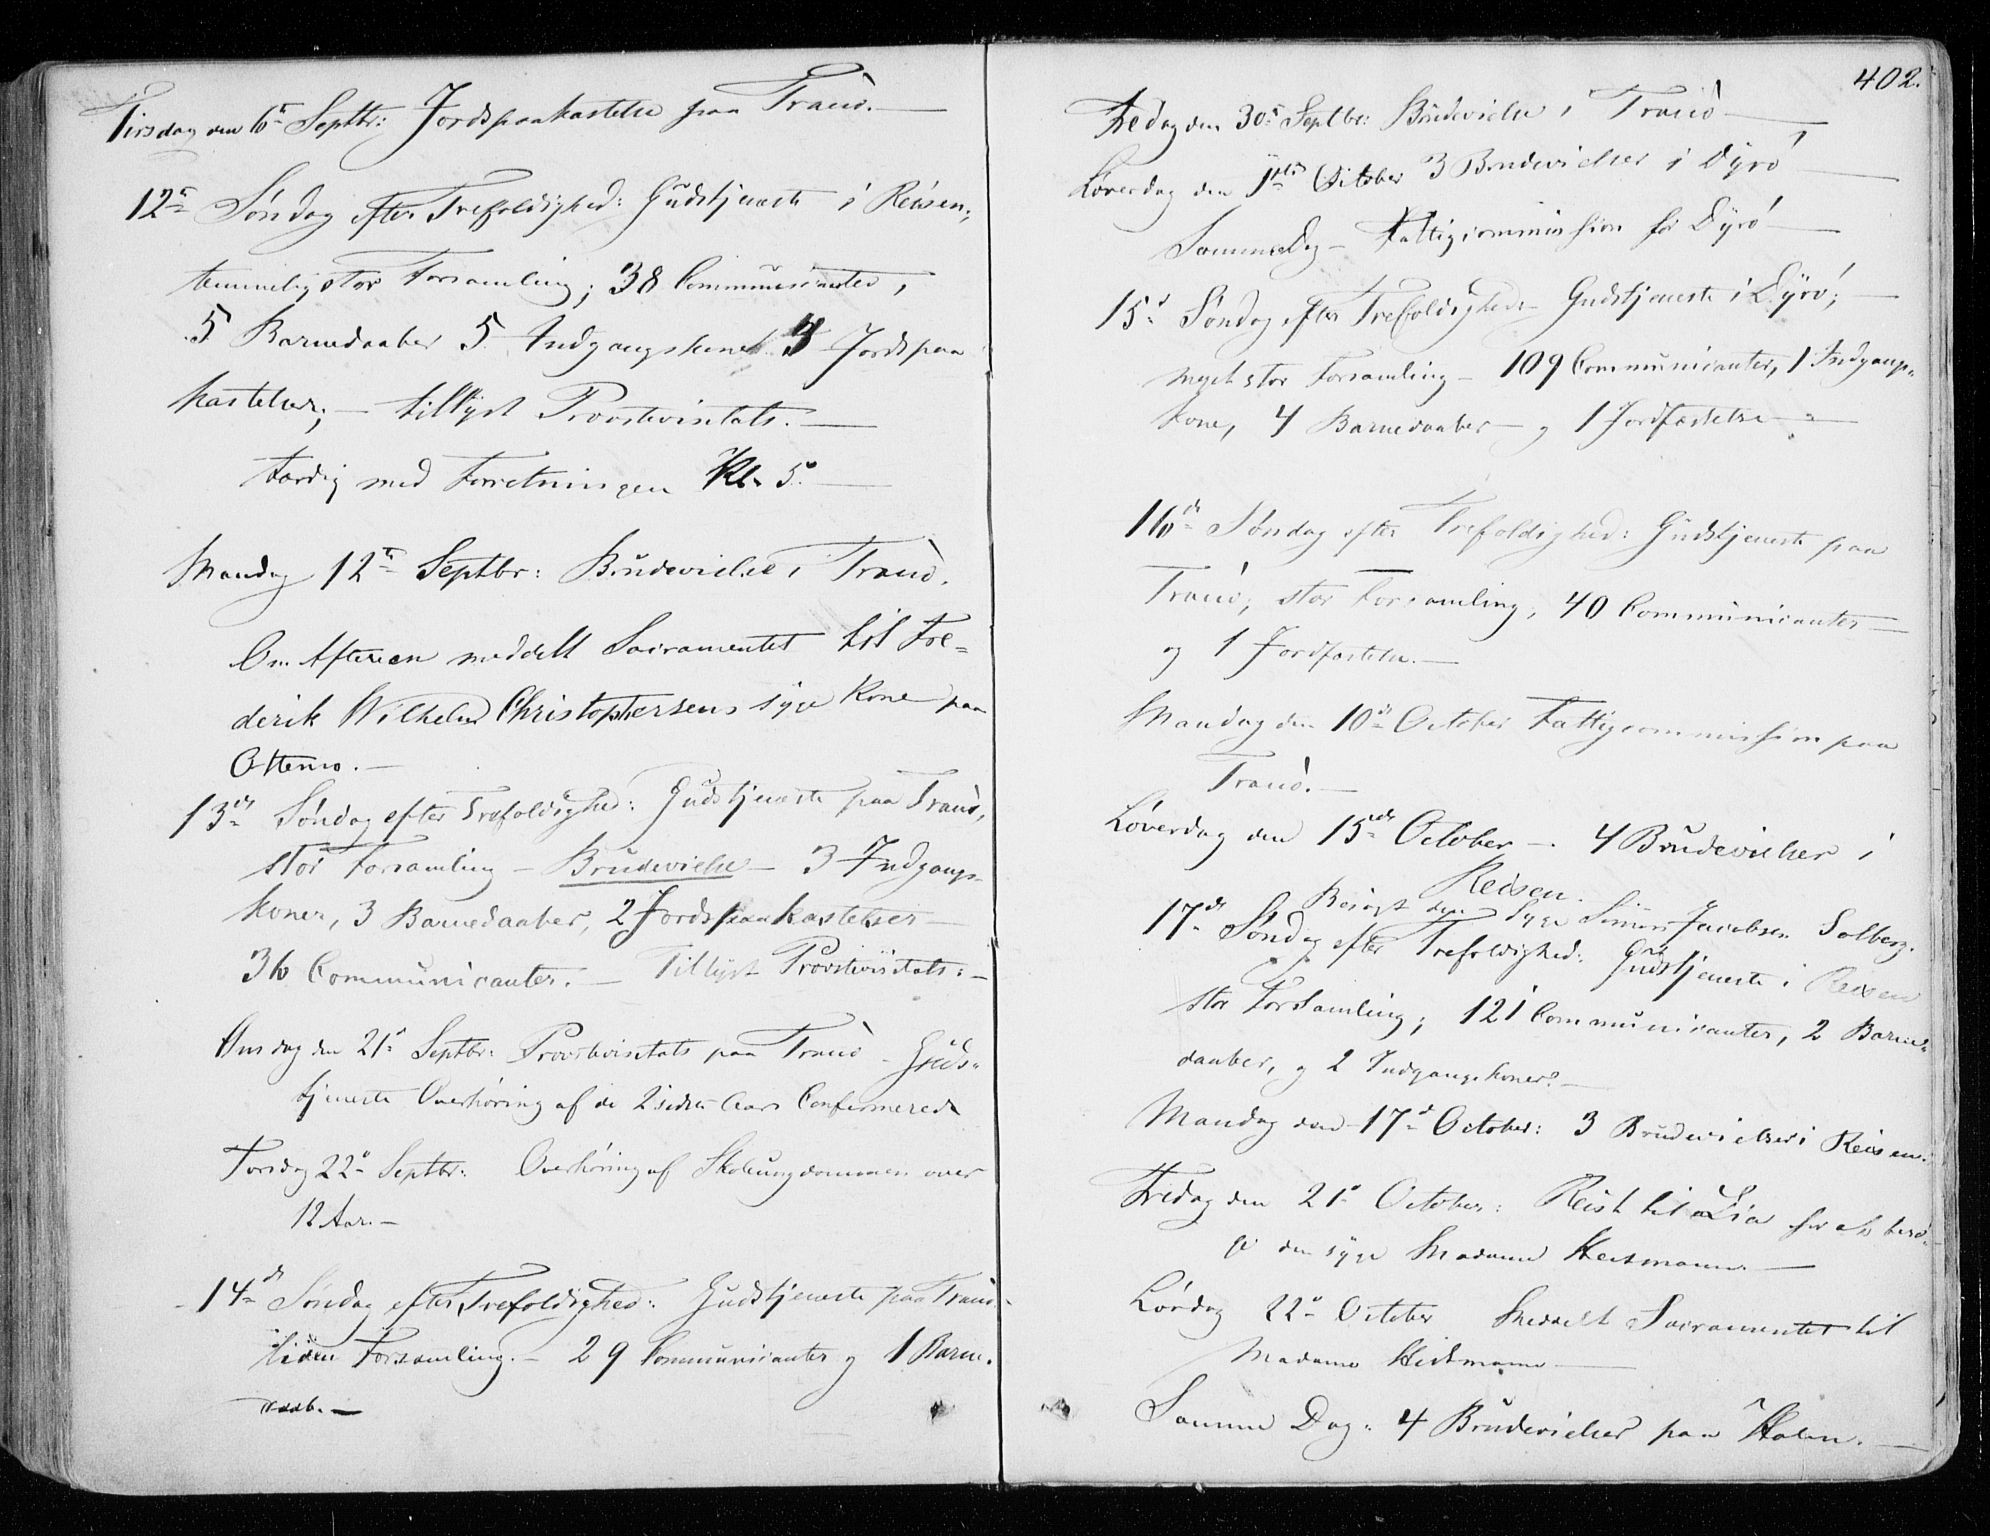 Tirsdag den 6te Septbr: Jordspaakastelse paa Tranö. —
12te Søndag efter Trefoldighed: Gudstjeneste i Reisen;
temmelig stor Forsamling; 38 Communicanter,
5 Barnedaaber 5 Indgangskoner 3 Jordspaa
kastelser; — tillyst Provstevisitats. —
Færdig med Forretningen Kl. 5. —
Mandag 12te Septbr: Brudevielse i Tranö.
Om Aftenen meddelt Sacramentet til Fre=
derik Wilhelm Christophersens syge Kone paa
13de Søndag efter Trefoldighed: Gudstjeneste paa Tranö,
stor Forsamling — Brudevielse — 3 Indgangs-
koner, 3 Barnedaaber, 2 Jordspaakastelser —
36 Communicanter. — Tillyst Provstevisitats: —
Onsdag den 21de Septbr: Provstevisitats paa Tranö — Guds=
tjeneste Overhøring af de 2 sidste Aars Confirmerede
Torsdag 22de Septbr: Overhøring af Skoleungdommen over
12 Aar. —
14de Søndag efter Trefoldighed: Gudstjeneste paa Tranö
liden Forsamling. — 29 Communicanter og 1 Barne-
daab. —
402.
Fredag den 30te Septbr: Brudevielse i Tranö —
Løverdag den 1ste October 3 Brudevielser i Dyrö —
Samme Dag — Fattigcommission for Dyrö —
15de Søndag efter Trefoldighed — Gudstjeneste i Dyrö; —
meget stor Forsamling — 109 Communicanter, 1 Indgangs=
kone, 4 Barnedaaber — og 1 Jordfæstelse —
16de Søndag efter Trefoldighed: Gudstjeneste paa
Tranö; stor Forsamling; 40 Communicanter —
og 1 Jordfæstelse. —
Mandag den 10de October Fattigcommission paa
Tranö. —
Løverdag den 15de October —. 4 Brudevielser i
Reisen.
Besøgt den syge Simon Jacobsen Solberg.
17de Søndag efter Trefoldighed: Gudstjeneste i Reisen
stor Forsamling; 121 Communicanter, 2 Barne=
daaber, og 2 Indgangskoner. —
Mandag den 17de October: 3 Brudevielser i Reisen.
Fredag den 21de October: Reist til Lia for at besø=
ge den syge Madame Heitmann. —
Lørdag 22de October Meddelt Sacramentet til
Madame Heitmann —
Samme Dag: 4 Brudevielser paa Holm. —